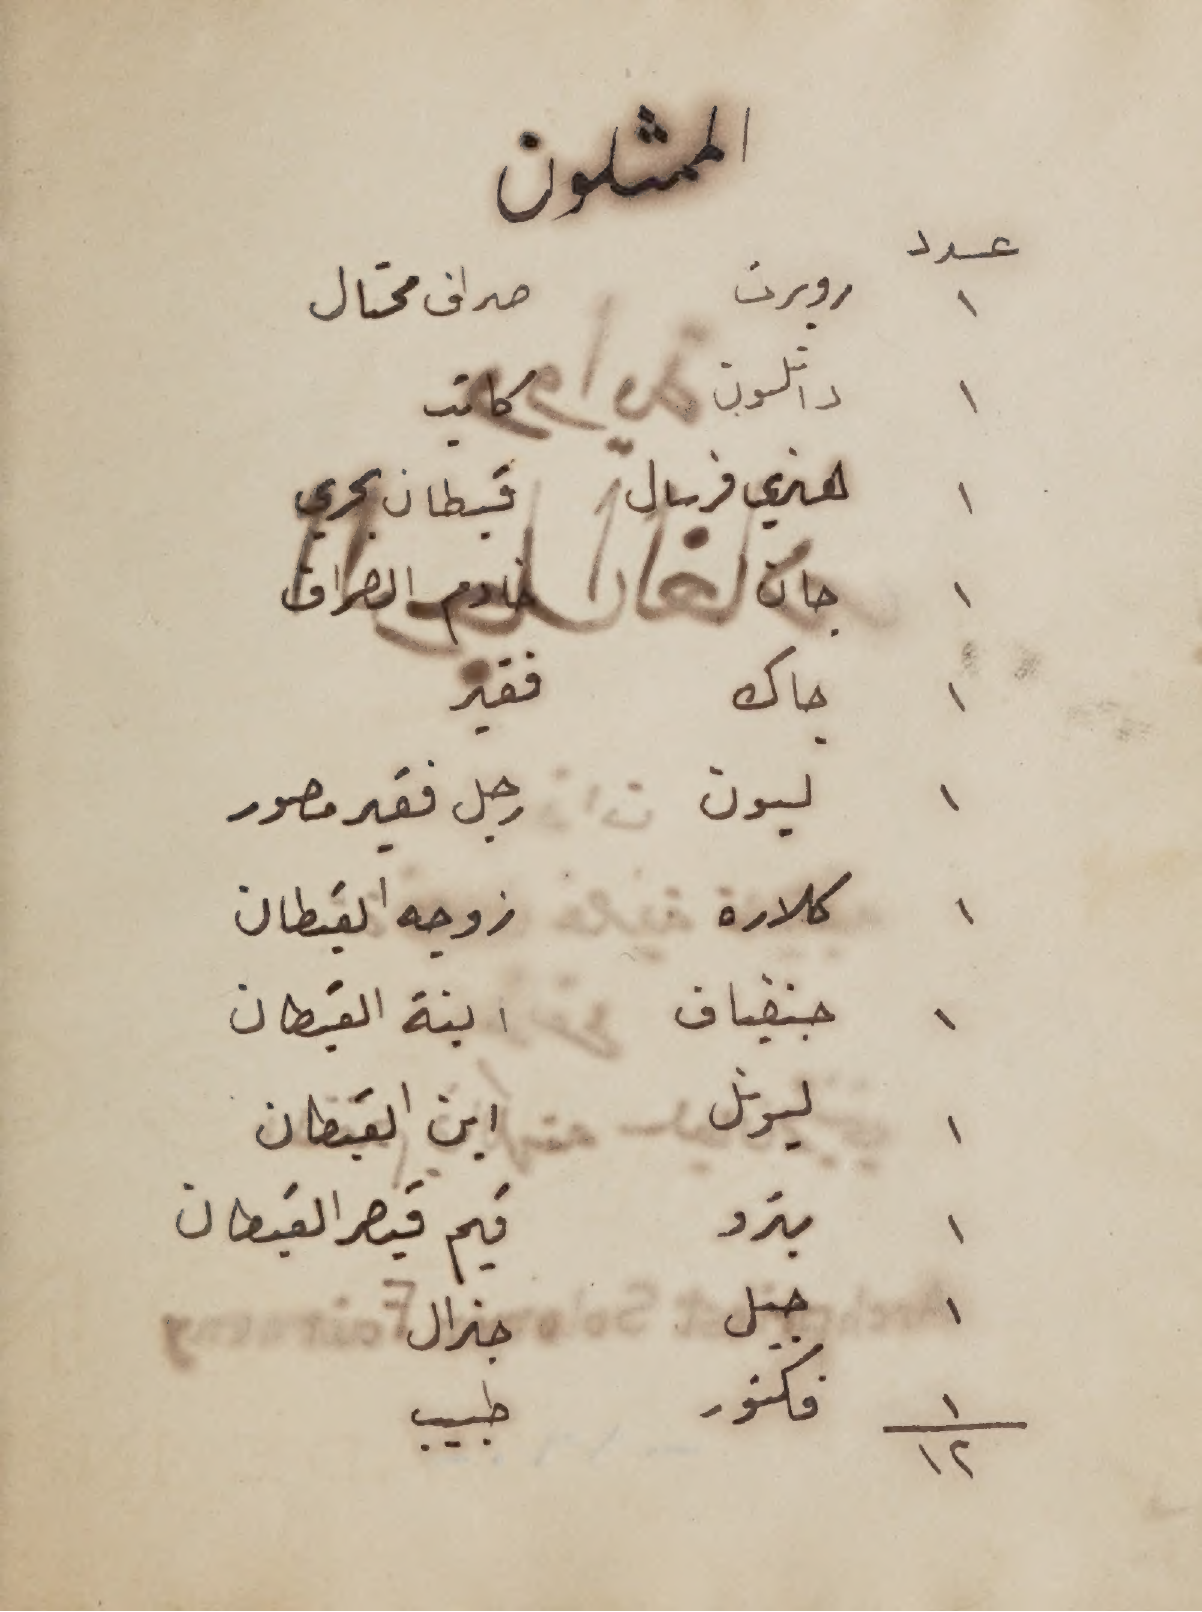 الممثلون
عدد
١ روبرت صراف محتال
١ دانلون كاتب
١ هنري فرسال قبطان بحري
١ جان خادم الصراف
١ جاك فقير
١ ليون رجل فقير مصور
١ كلاره زوجه القبطان
١ جنفياف ابنة القبطان
١ ليونل ابن القبطان
١ بترو قيم قيصر القبطان
١ جيل جنرال
١ فكتور طبيب
١٢